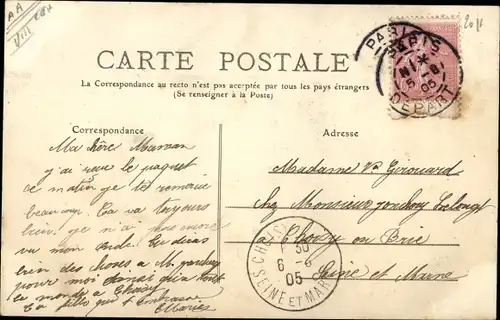 AA
VIII
CARTE POSTALE
La Correspondance au recto n'est pas acceptée par tous les pays étrangers
(Se renseigner à la Poste)
Correspondance
Ma chère Maman
j'ai reçu le paquet
ce matin je te remercie
beaucoup. Ca va toujours
bien, je n'ai pas encore
vu mon oncle. Tu diras
bien des choses a M.
pour moi ainsi qu'a tout
le monde a Choisy
Ta fille qui t'embrasse
Marie
Adresse
Madame Vve Girouard
chez Monsieur Lelong
a Choisy en Brie
Seine et Marne
PARIS
PARIS
DEPART
CHOISY
30
6 -6
05
SEINE ET MARNE